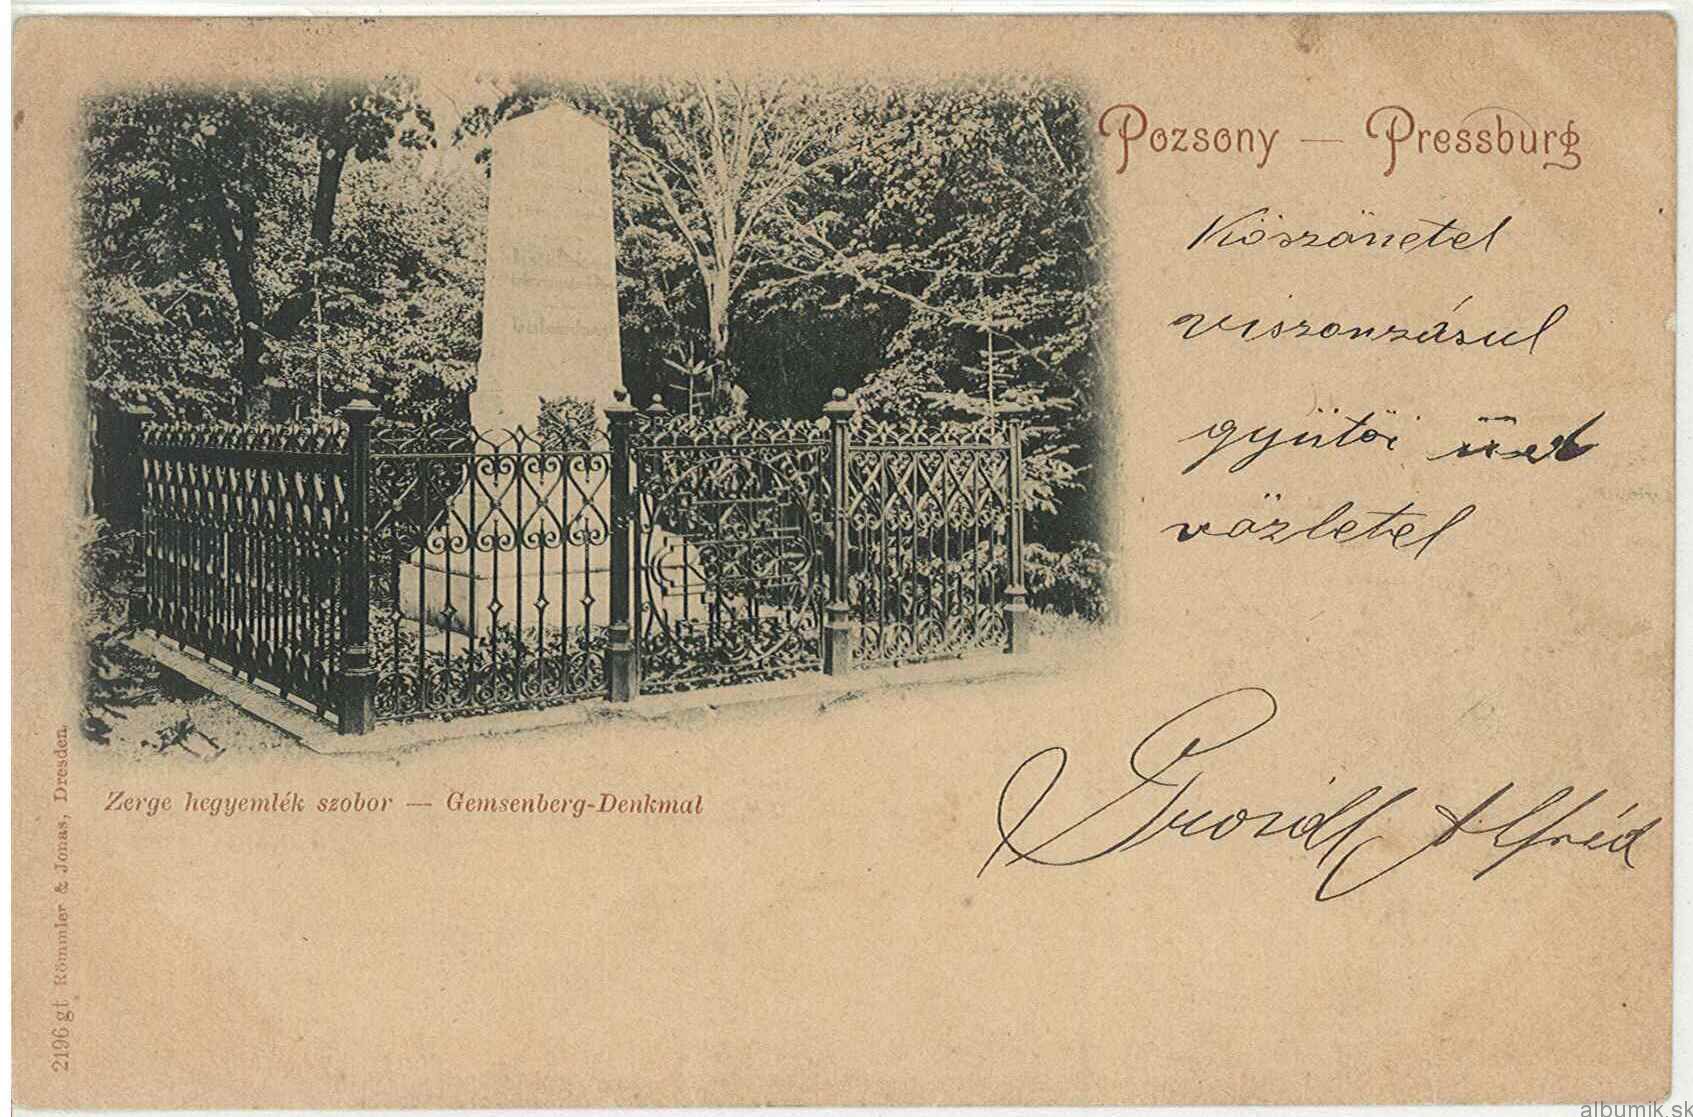 Pozsony — Pressburg
Köszönetel
viszonzásul
gyütöi
vözletel
Alfréd
Zerge hegyemlék szobor — Gemsenberg-Denkmal
2196 gt Römmler & Jonas, Dresden
albumik.sk